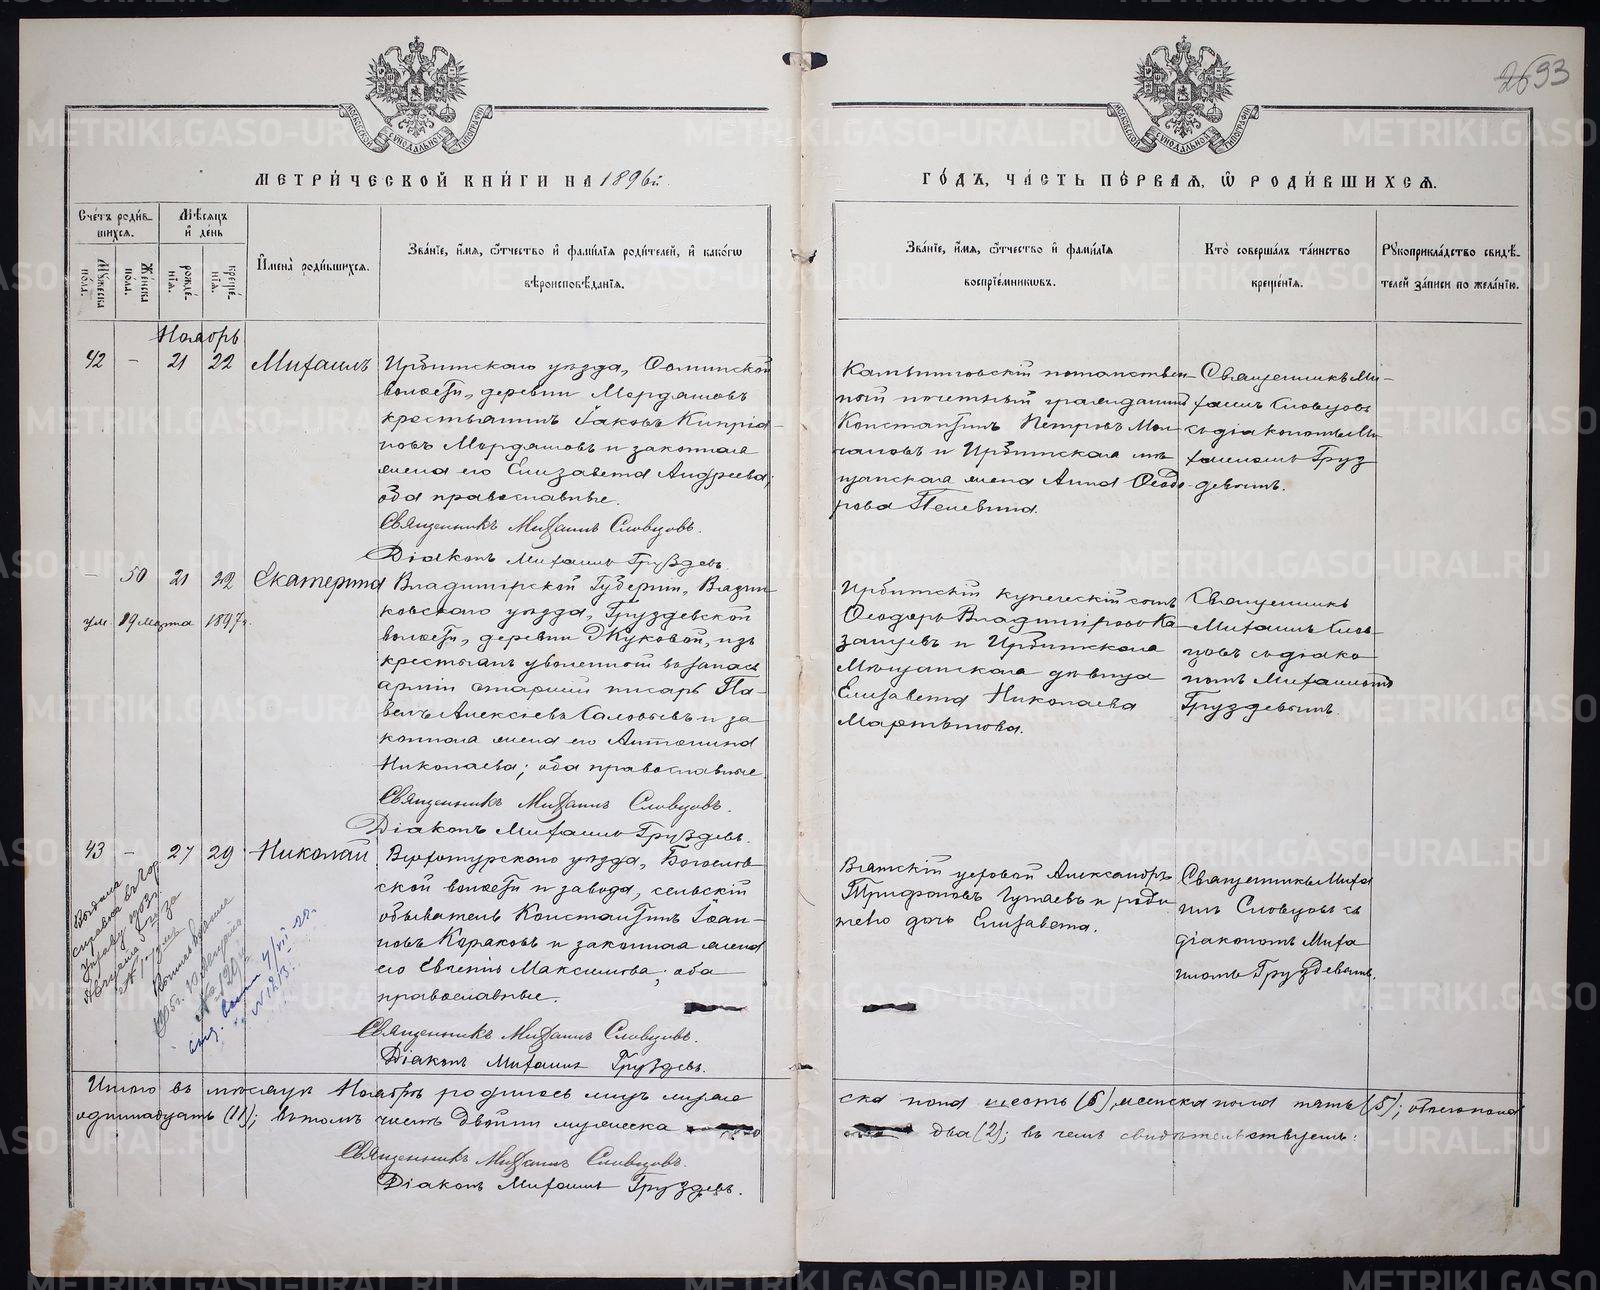 2693
МЕТРИ́ЧЕСКОЙ КНИ́ГИ НА 1896й.
ГО́ДЪ, ЧА́СТЬ ПЕ́РВАЯ, Ѿ РОДИ́ВШИХСЯ.
Сче́тъ роди́вшихся.
Мѣсяцъ и҆ де́нь
Мꙋжеска по́ла.
Же́нска по́ла.
рожде́нїѧ.
креще́нїѧ.
И҆мена̀ роди́вшихсѧ.
Зва́нїе, и҆́мѧ, ѻ҆́тчество и҆ фами́лїѧ роди́телей, и҆ како́гѡ
вѣроисповѣ́данїѧ.
Зва́нїе, и҆́мѧ, ѻ҆́тчество и҆ фами́лїѧ
воспрїе́мникѡвъ.
Кто̀ соверша́лъ та́инство
креще́нїѧ.
Рꙋкоприкла́дство свидѣ́-
телей за́писи по жела́нїю.
Ноябрь
42 - 21 22 Михаилъ
Ирбитскаго уѣзда,
волости, деревни Мордяшовъ
крестьянинъ Іаковъ Кипріа-
новъ Мордяшовъ и законная
жена его Елизавета Андреева;
оба православные.
Священникъ Михаилъ Словцовъ.
Діаконъ Михаилъ Груздевъ.
потомствен-
ный почетный гражданинъ
Константинъ Петровъ Мол-
чановъ и Ирбитская мѣ-
щанская жена Анна Ѳеодо-
рова
Священникъ Ми-
хаилъ Словцовъ
съ діакономъ Ми-
хаиломъ Груз-
девымъ.
- 50 21 22 Екатерина
ум. 19 марта 1897 г.
Владимірской Губерніи, Вязни-
ковскаго уѣзда, Груздевской
волости, деревни Жуковой, изъ
крестьянъ уволенный въ запасъ
арміи старшій писарь Па-
велъ Алексѣевъ Соловьевъ и за-
конная жена его Антонина
Николаева; оба православные.
Священникъ Михаилъ Словцовъ.
Діаконъ Михаилъ Груздевъ.
Ирбитскій купеческій сынъ
Ѳеодоръ Владиміровъ Ка-
занцевъ и Ирбитская
Мѣщанская дѣвица
Елизавета Николаева
Мартынова.
Священникъ
Михаилъ Слов-
цовъ съ діако-
номъ Михаиломъ
Груздевымъ.
43 - 27 29 Николай
Верхотурскаго уѣзда, Богослов-
ской волости и завода, сельскій
обыватель Константинъ Іоан-
новъ Кораковъ и законная жена
его Евгенія Максимова; оба
православные.
Священникъ Михаилъ Словцовъ.
Діаконъ Михаилъ Груздевъ.
Вятскій цеховой Александръ
Трифоновъ и
его дочь Елизавета.
Священникъ Миха-
илъ Словцовъ съ
діакономъ Миха-
иломъ Груздевымъ.
Выдана
справка въ Гор.
Управу 1903 г.
Итого въ мѣсяцѣ Ноябрѣ родилось лицъ мужеска пола шесть (6), женска пола пять (5); обоего пола
одиннадцать (11); въ томъ числѣ двойни мужеска два (2); въ чемъ свидѣтельствуемъ:
Священникъ Михаилъ Словцовъ.
Діаконъ Михаилъ Груздевъ.
METRIKI.GASO-URAL.RU